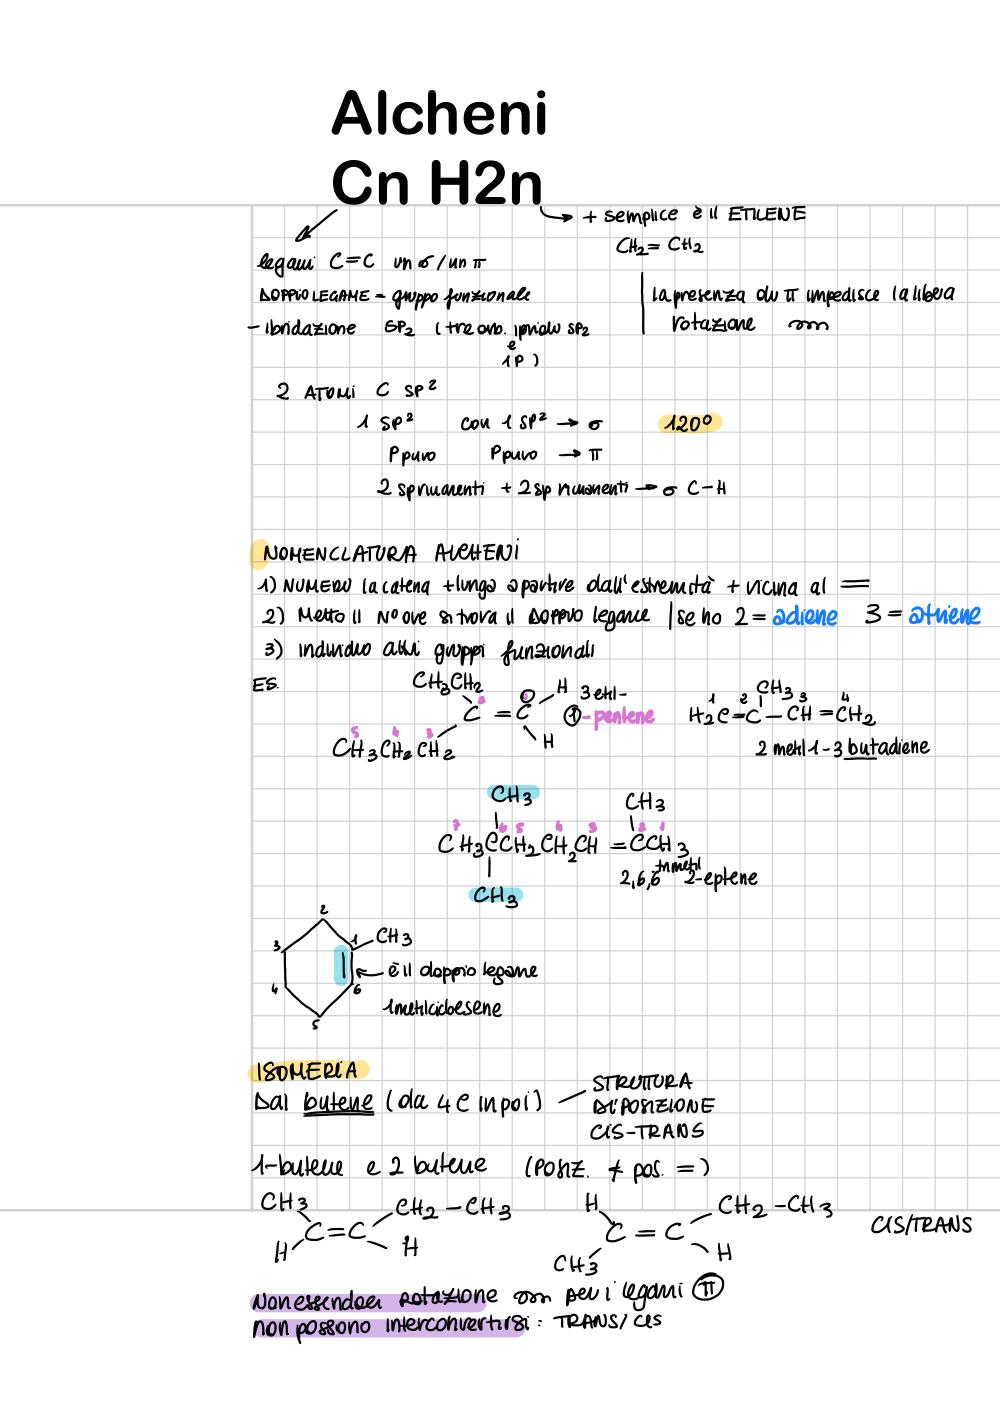 Alcheni
Cn H2n
+ semplice è il ETILENE
CH2 = CH2
legami C=C un σ/un π
DOPPIO LEGAME = gruppo funzionale
la presenza du π impedisce la libera
rotazione
- ibridazione SP2 (tre orb. ipridu SP2
e
1P)
2 ATOMI C SP²
1 SP² con 1 SP² → σ 120°
P puro P puro → π
2 sp rimanenti + 2 sp rimanenti → σ C-H
NOMENCLATURA ALCHENI
1) NUMERO la catena + lunga a partire dall'estremità + vicina al =
2) Metto il N° ove si trova il DOPPIO legame | se ho 2 = adiene 3 = atriene
3) individuo altri gruppi funzionali
ES.
CH3CH2 H 3 etil-
2 1
C = C 1 - pentene
5 4 3
CH3CH2CH2 H
CH3
1 2 3 4
H2C=C-CH=CH2
2 metil 1-3 butadiene
CH3 CH3
7 6 5 4 3 2 1
CH3CCH2CH2CH=CCH3
CH3
2,6,6 trimetil 2-eptene
2
3 1 CH3
è il doppio legame
4 6
1 metilcicloesene
5
ISOMERIA
Dal butene (da 4 C in poi)
STRUTTURA
DI POSIZIONE
CIS-TRANS
1-butene e 2 butene (POSIZ. ≠ pos. =)
CH3 CH2-CH3
C=C
H H
H CH2-CH3
C = C
CH3 H
CIS/TRANS
Non essendoci rotazione per i legami π
non possono interconvertirsi : TRANS/cis